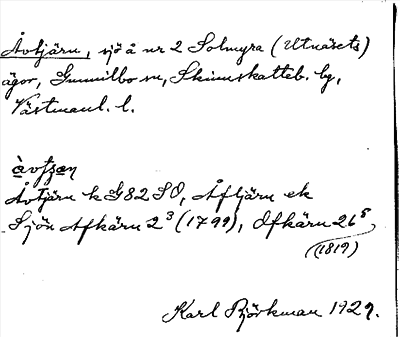 Åvtjärn, sjö å nr 2 Solmyra (Utnäsets)
ägor, Gunnilbo sn, Skinnskatteb. hg,
Västmanl. l.
àvt͡ʃæn
Åvtjärn k G82 SO, Åftjärn ek
Sjön Afkärn 2³ (1799), Ofkärn 26⁵
(1819)
Karl Björkman 1929.